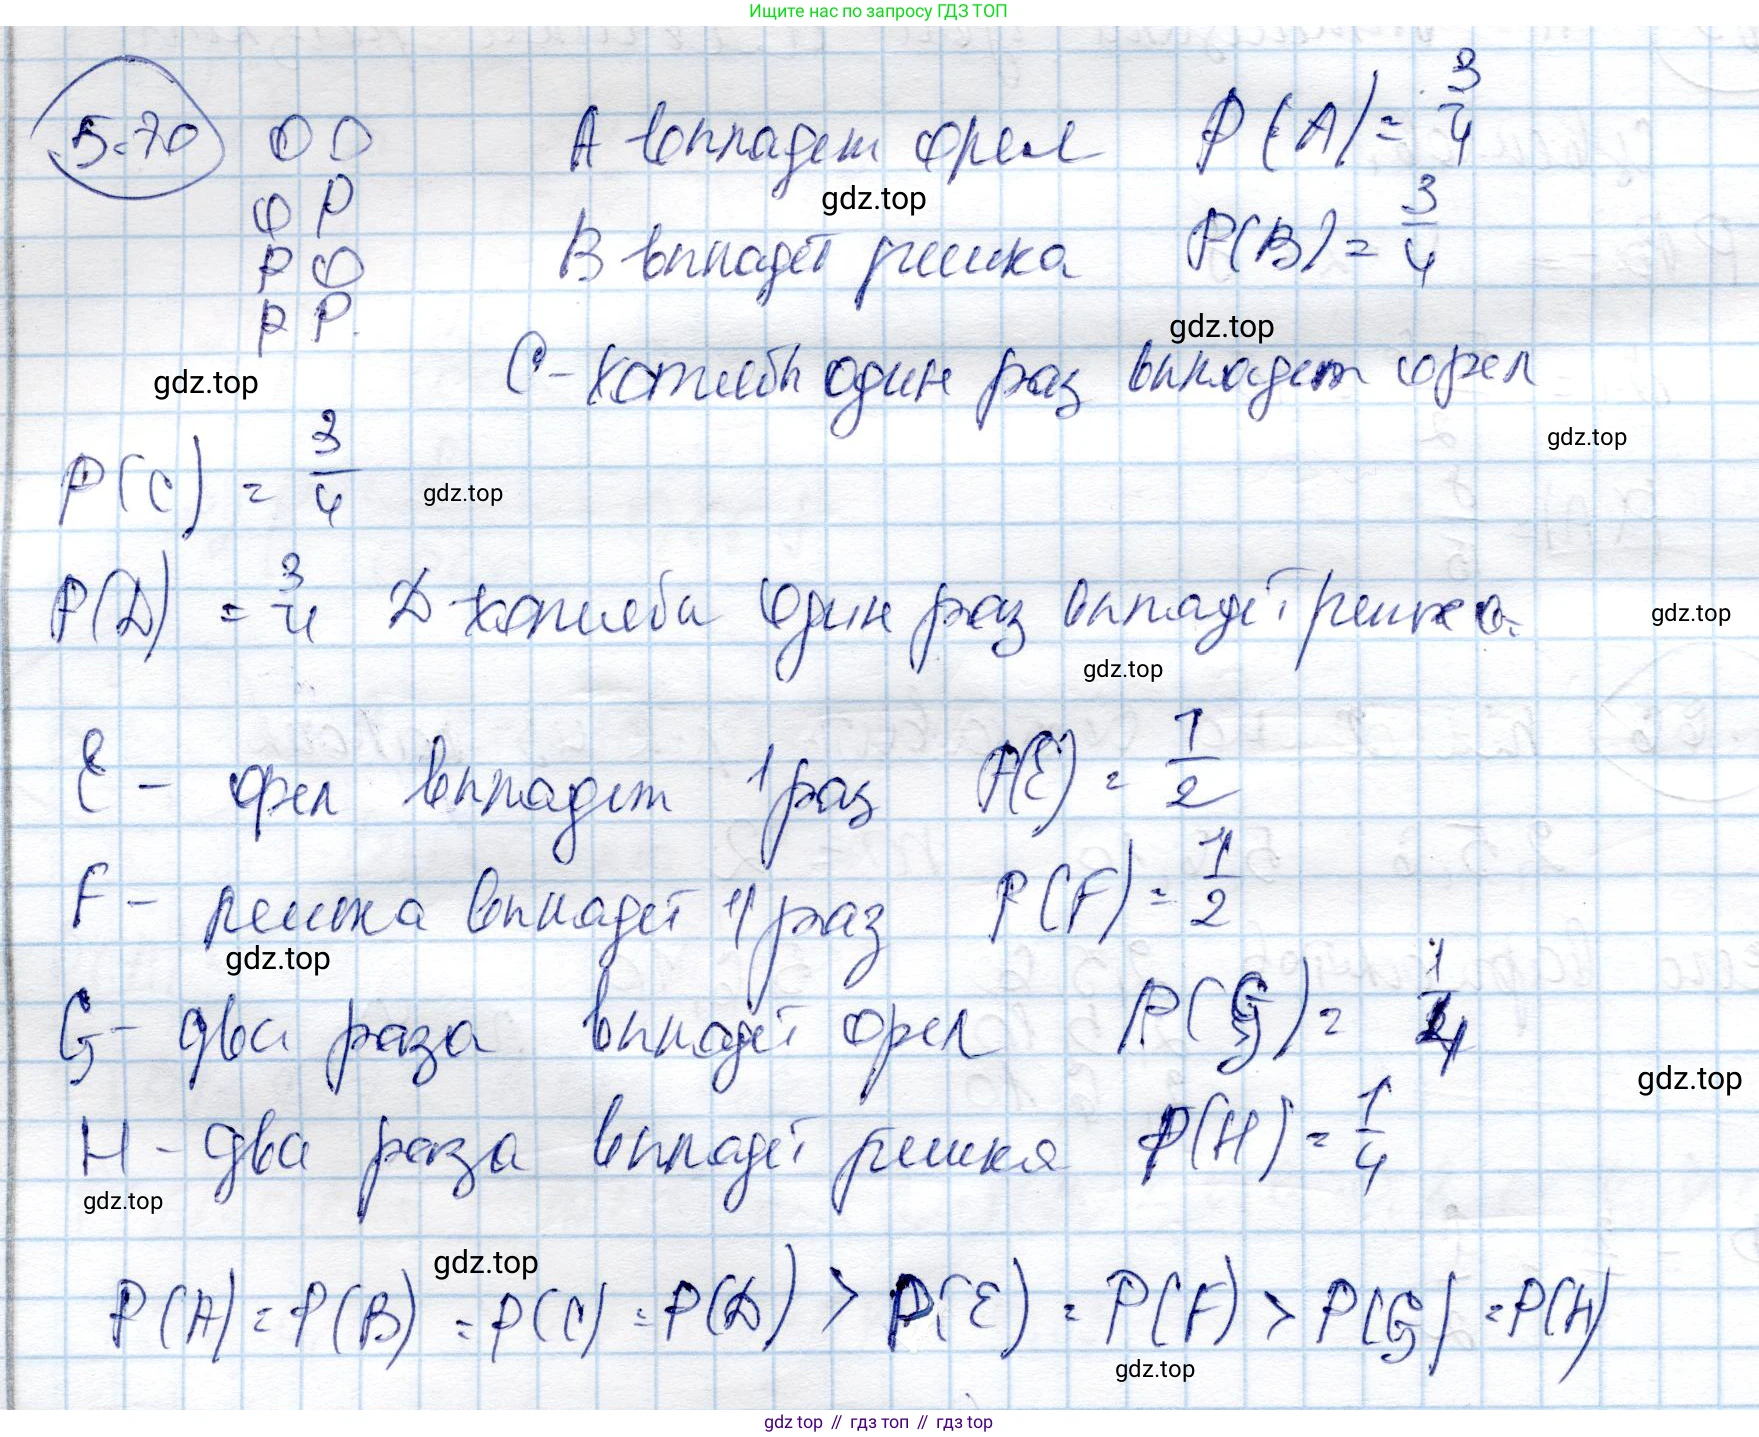 Ищите нас по запросу ГДЗ ТОП
5.70 О О A выпадет орел P(A) = 3/4
gdz.top
О Р
Р О B выпадет решка P(B) = 3/4
Р Р.
gdz.top
gdz.top C - хотябы один раз выпадет орел
gdz.top
P(C) = 3/4 gdz.top
P(D) = 3/4 D хотябы один раз выпадет решка. gdz.top
gdz.top
E - орел выпадет 1 раз P(E) = 1/2
F - решка выпадет 1 раз P(F) = 1/2
gdz.top
G - два раза выпадет орел P(G) = 1/4
gdz.top
H - два раза выпадет решка P(H) = 1/4
gdz.top
gdz.top
P(A) = P(B) = P(C) = P(D) > P(E) = P(F) > P(G) = P(H)
gdz.top
gdz top // гдз топ // гдз top